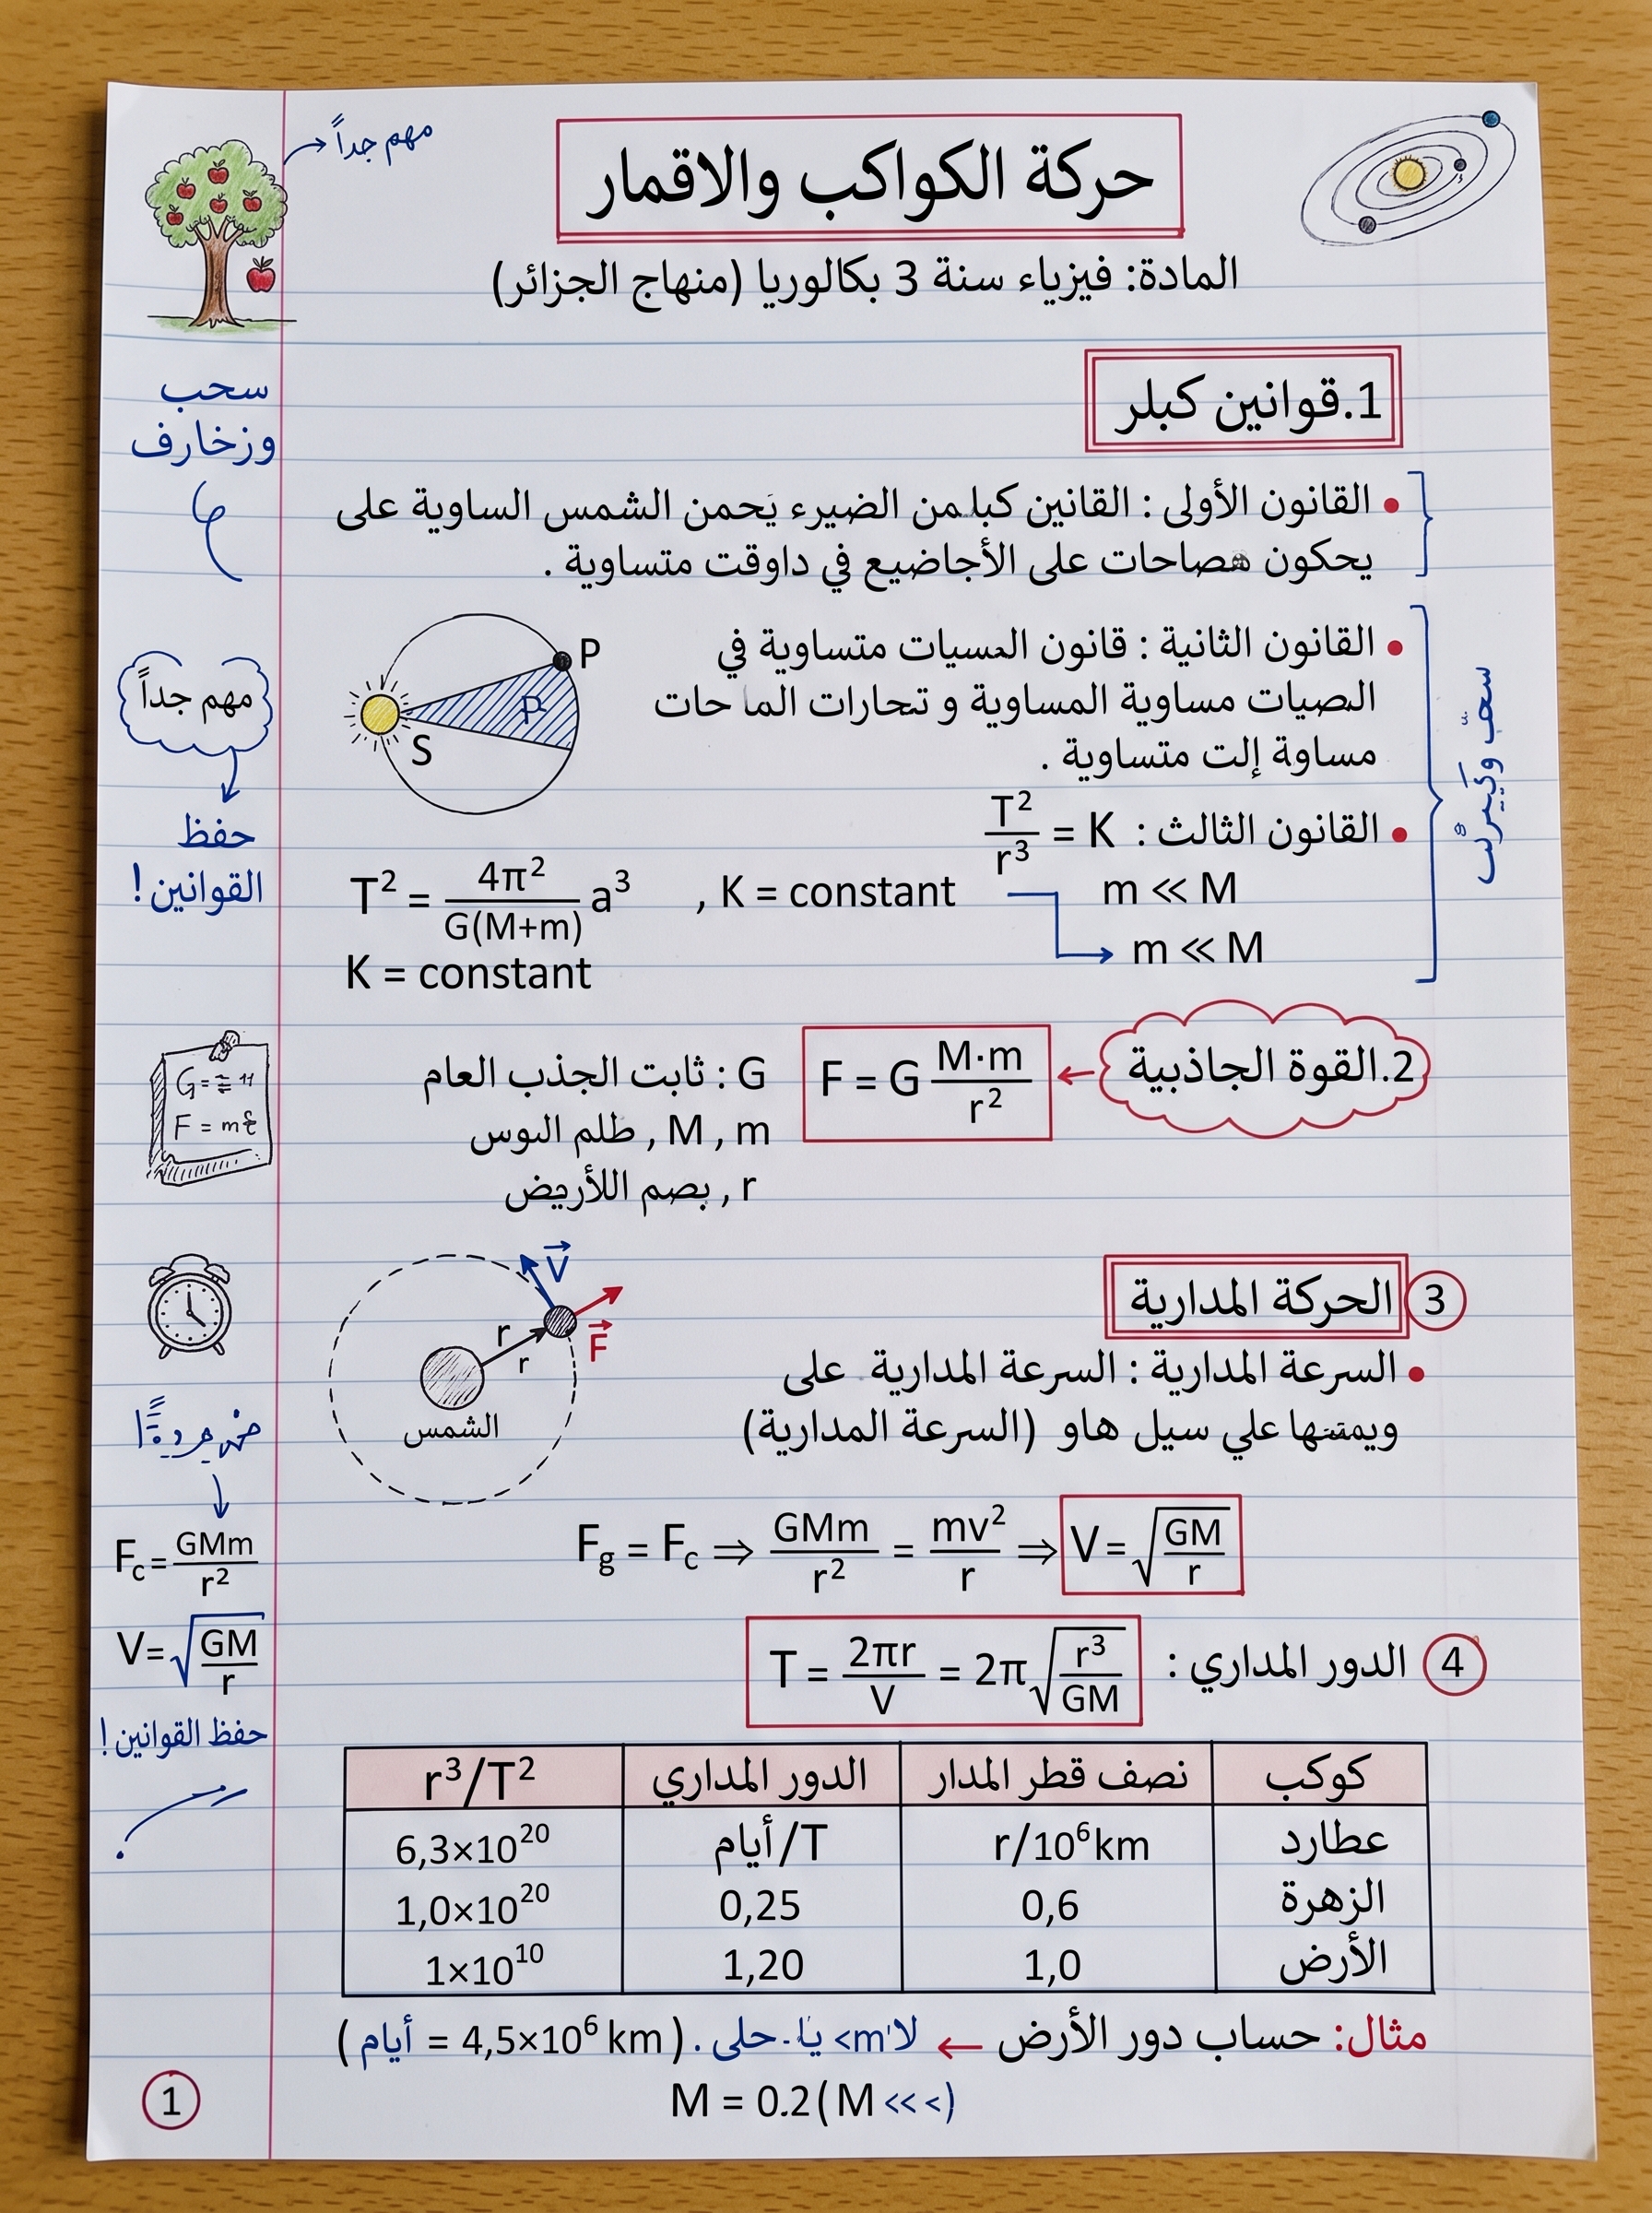 مهم جداً
حركة الكواكب والاقمار
المادة: فيزياء سنة 3 بكالوريا (منهاج الجزائر)
سحب
وزخارف
1.قوانين كبلر
• القانون الأولى : القانين كبلمن الضيرء يَحمن الشمس الساوية على
يحكون مصاحات على الأجاضيع في داوقت متساوية .
• القانون الثانية : قانون المسيات متساوية في
الصيات مساوية المساوية و تحارات الما حات
مساوة إلت متساوية .
P
P
S
مهم جداً
حفظ
القوانين!
• القانون الثالث : T²/r³ = K
T² = 4π²/G(M+m) a³ , K = constant
m ≪ M
m ≪ M
K = constant
2.القوة الجاذبية
F = G M·m/r²
G : ثابت الجذب العام
M , m , طلم البوس
r , بصم اللأريض
G =
F = m
3 الحركة المدارية
• السرعة المدارية : السرعة المدارية على
ويمتها علي سيل هاو (السرعة المدارية)
V
F
r
r
الشمس
Fg = Fc ⇒ GMm/r² = mv²/r ⇒ V = √GM/r
Fc = GMm/r²
V = √GM/r
حفظ القوانين!
4 الدور المداري : T = 2πr/V = 2π√r³/GM
كوكب نصف قطر المدار الدور المداري r³/T²
عطارد r/10⁶km أيام/T 6,3×10²⁰
الزهرة 0,6 0,25 1,0×10²⁰
الأرض 1,0 1,20 1×10¹⁰
مثال: حساب دور الأرض ← (أيام = 4,5×10⁶ km)
M = 0.2(M <<<)
1